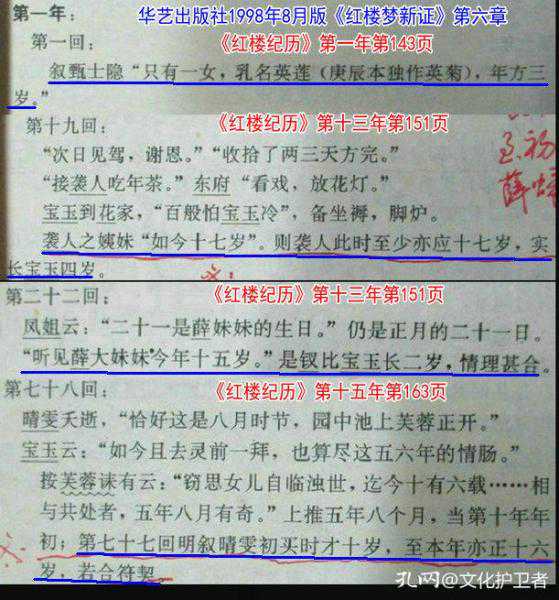 第一年：
华艺出版社1998年8月版《红楼梦新证》第六章
第一回：
《红楼纪历》第一年第143页
叙甄士隐“只有一女，乳名英莲（庚辰本独作英菊），年方三
岁。”
第十九回：
《红楼纪历》第十三年第151页
“次日见驾，谢恩。”“收拾了两三天方完。”
“接袭人吃年茶。”东府“看戏，放花灯。”
宝玉到花家，“百般怕宝玉冷”，备坐褥，脚炉。
袭人之姨妹“如今十七岁”。则袭人此时至少亦应十七岁，实
长宝玉四岁。
第二十二回：
《红楼纪历》第十三年第151页
凤姐云：“二十一是薛妹妹的生日。”仍是正月的二十一日。
“听见薛大妹妹今年十五岁。”是钗比宝玉长二岁，情理甚合。
第七十八回：
《红楼纪历》第十五年第163页
晴雯夭逝，“恰好这是八月时节，园中池上芙蓉正开。”
宝玉云：“如今且去灵前一拜，也算尽这五六年的情肠。”
按芙蓉诔有云：“窃思女儿自临浊世，迄今十有六载……相
与共处者，五年八月有奇。”上推五年八个月，当第十年年
初；第七十七回明叙晴雯初买时才十岁，至本年亦正十六
岁，若合符契
孔网@文化护卫者